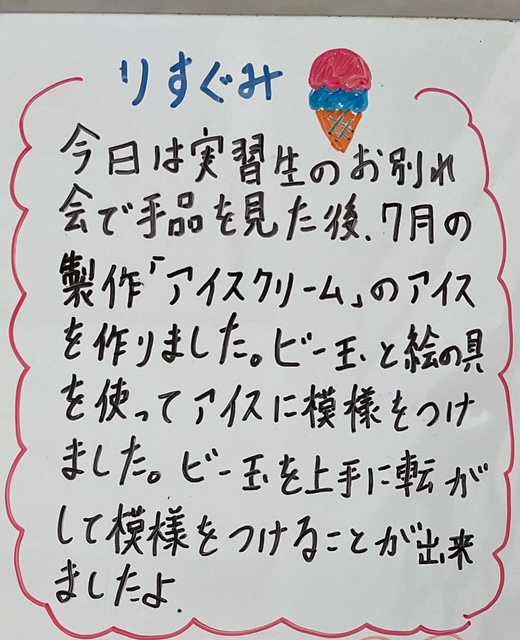 りすぐみ
今日は実習生のお別れ
会で手品を見た後、7月の
製作「アイスクリーム」のアイス
を作りました。ビー玉と絵の具
を使ってアイスに模様をつけ
ました。ビー玉を上手に転が
して模様をつけることが出来
ましたよ。